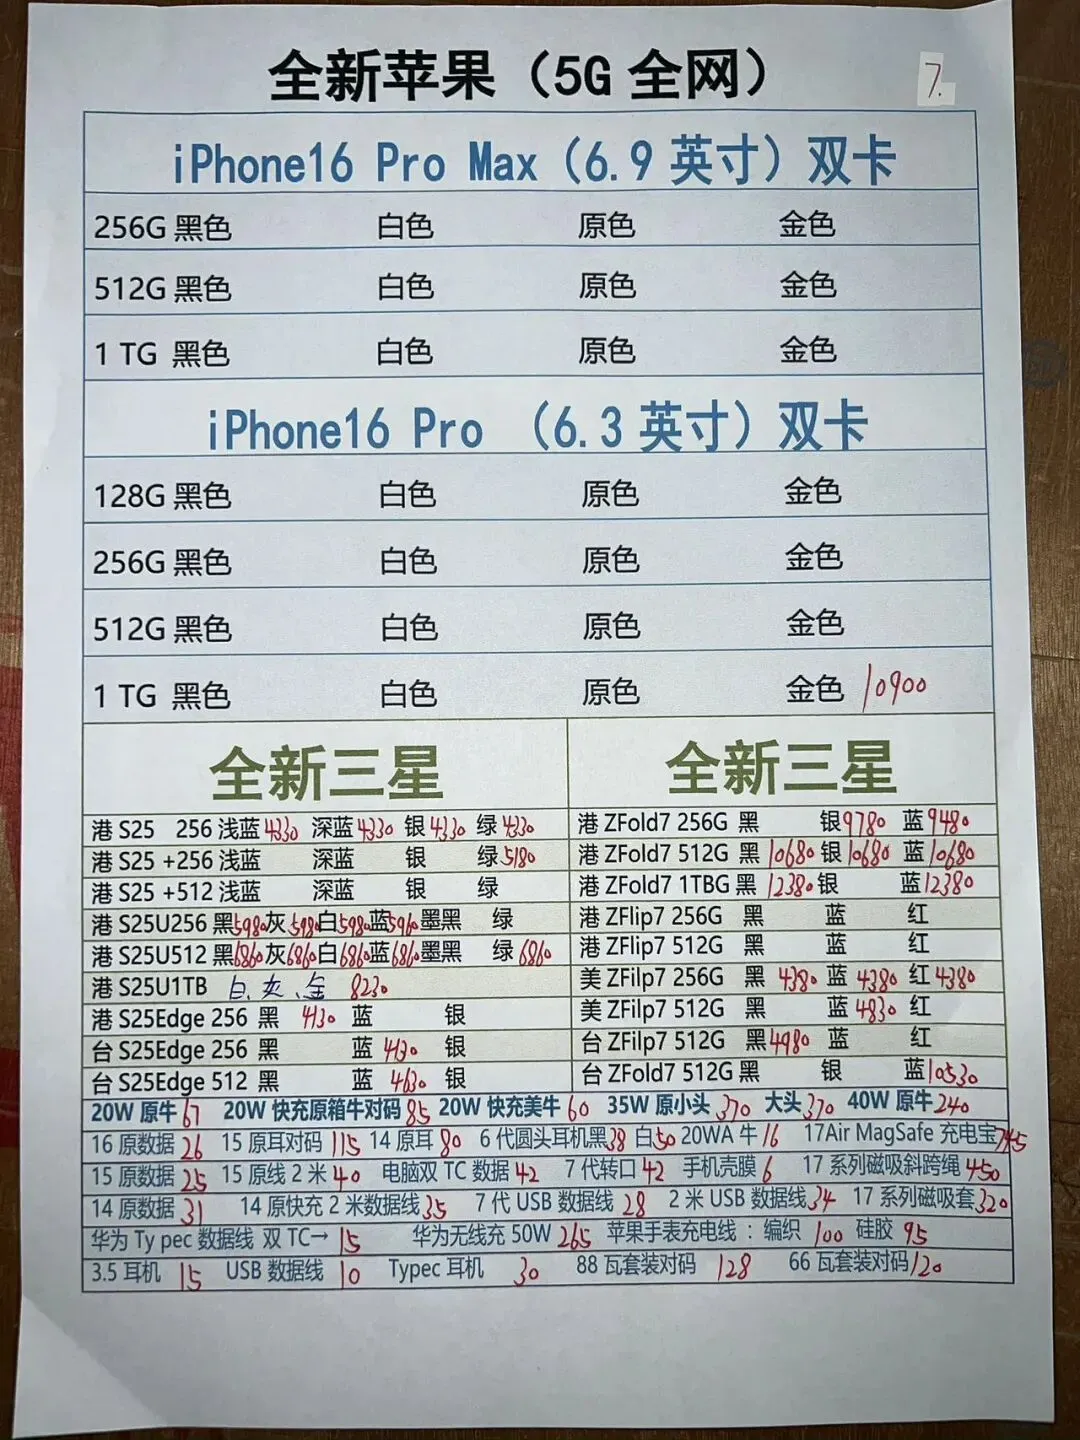 全新苹果（5G 全网）
7.
iPhone16 Pro Max（6.9 英寸）双卡
256G 黑色 白色 原色 金色
512G 黑色 白色 原色 金色
1 TG 黑色 白色 原色 金色
iPhone16 Pro （6.3 英寸）双卡
128G 黑色 白色 原色 金色
256G 黑色 白色 原色 金色
512G 黑色 白色 原色 金色
1 TG 黑色 白色 原色 金色 10900
全新三星
港 S25 256 浅蓝 4330 深蓝 4330 银 4330 绿 4330
港 S25 +256 浅蓝 深蓝 银 绿 5180
港 S25 +512 浅蓝 深蓝 银 绿
港 S25U256 黑 5980 灰 5980 白 5980 蓝 5960 墨黑 绿
港 S25U512 黑 6860 灰 6860 白 6860 蓝 6860 墨黑 绿 6860
港 S25U1TB 白、灰、金 8230
港 S25Edge 256 黑 4130 蓝 银
台 S25Edge 256 黑 蓝 4130 银
台 S25Edge 512 黑 蓝 4630 银
全新三星
港 ZFold7 256G 黑 银 9780 蓝 9480
港 ZFold7 512G 黑 10680 银 10680 蓝 10680
港 ZFold7 1TBG 黑 12380 银 蓝 12380
港 ZFlip7 256G 黑 蓝 红
港 ZFlip7 512G 黑 蓝 红
美 ZFilp7 256G 黑 4380 蓝 4380 红 4380
美 ZFilp7 512G 黑 蓝 4830 红
台 ZFilp7 512G 黑 4980 蓝 红
台 ZFold7 512G 黑 银 蓝 10530
20W 原牛 67 20W 快充原箱牛对码 85 20W 快充美牛 60 35W 原小头 370 大头 370 40W 原牛 240
16 原数据 26 15 原耳对码 115 14 原耳 80 6 代圆头耳机黑 38 白 50 20WA 牛 16 17Air MagSafe 充电宝 745
15 原数据 25 15 原线 2 米 40 电脑双 TC 数据 42 7 代转口 42 手机壳膜 6 17 系列磁吸斜跨绳 450
14 原数据 31 14 原快充 2 米数据线 35 7 代 USB 数据线 28 2 米 USB 数据线 34 17 系列磁吸套 320
华为 Ty pec 数据线 双 TC→ 15 华为无线充 50W 265 苹果手表充电线 ：编织 100 硅胶 95
3.5 耳机 15 USB 数据线 10 Typec 耳机 30 88 瓦套装对码 128 66 瓦套装对码 120